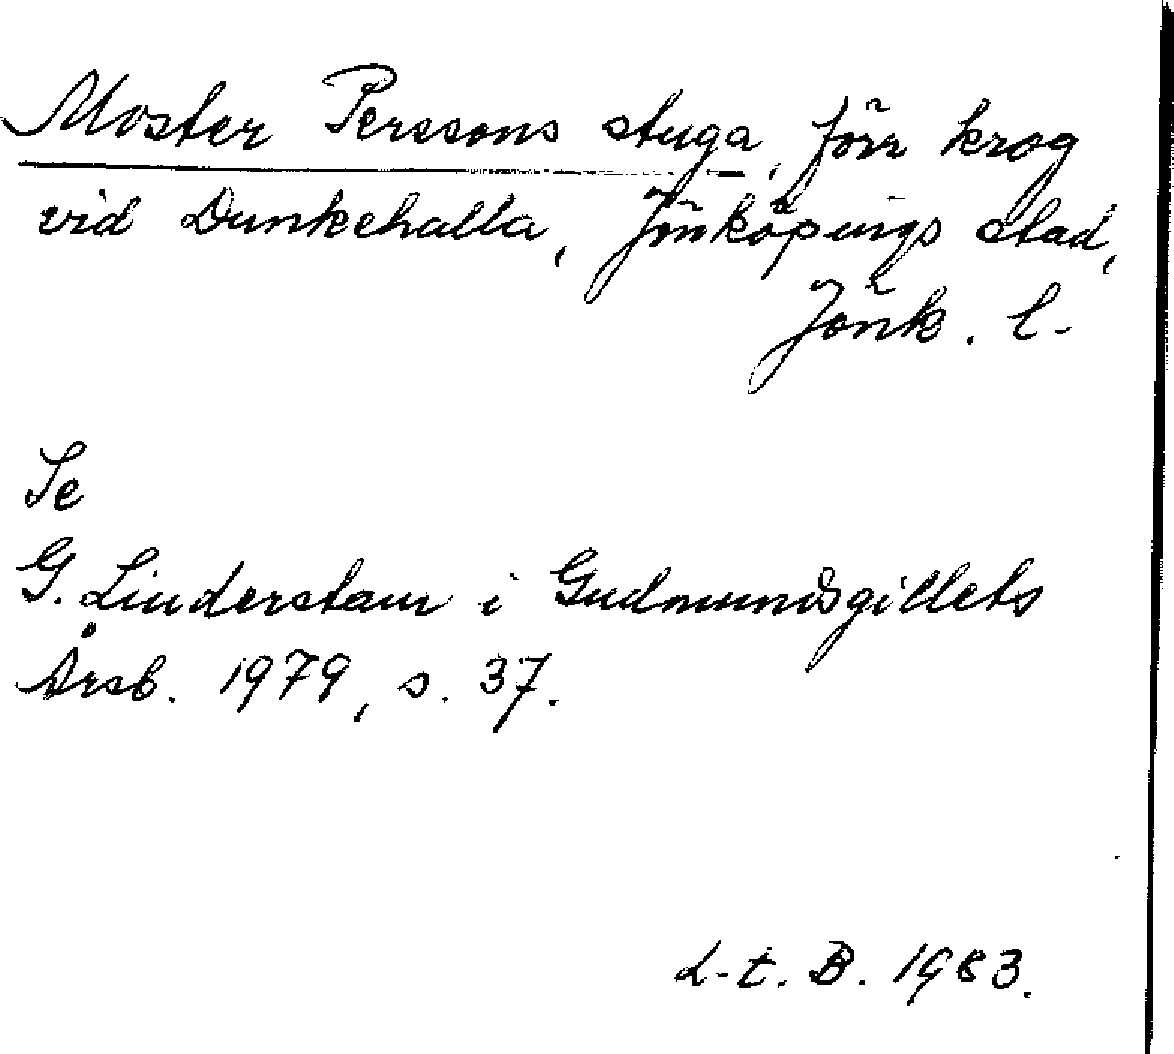 Moster Perssons stuga, förr krog
vid Dunkehalla, Jönköpings stad,
Jönk. l.
Se
G. Linderstam i Gudmundsgillets
Årsb. 1979, s. 37.
L-t. B. 1983.